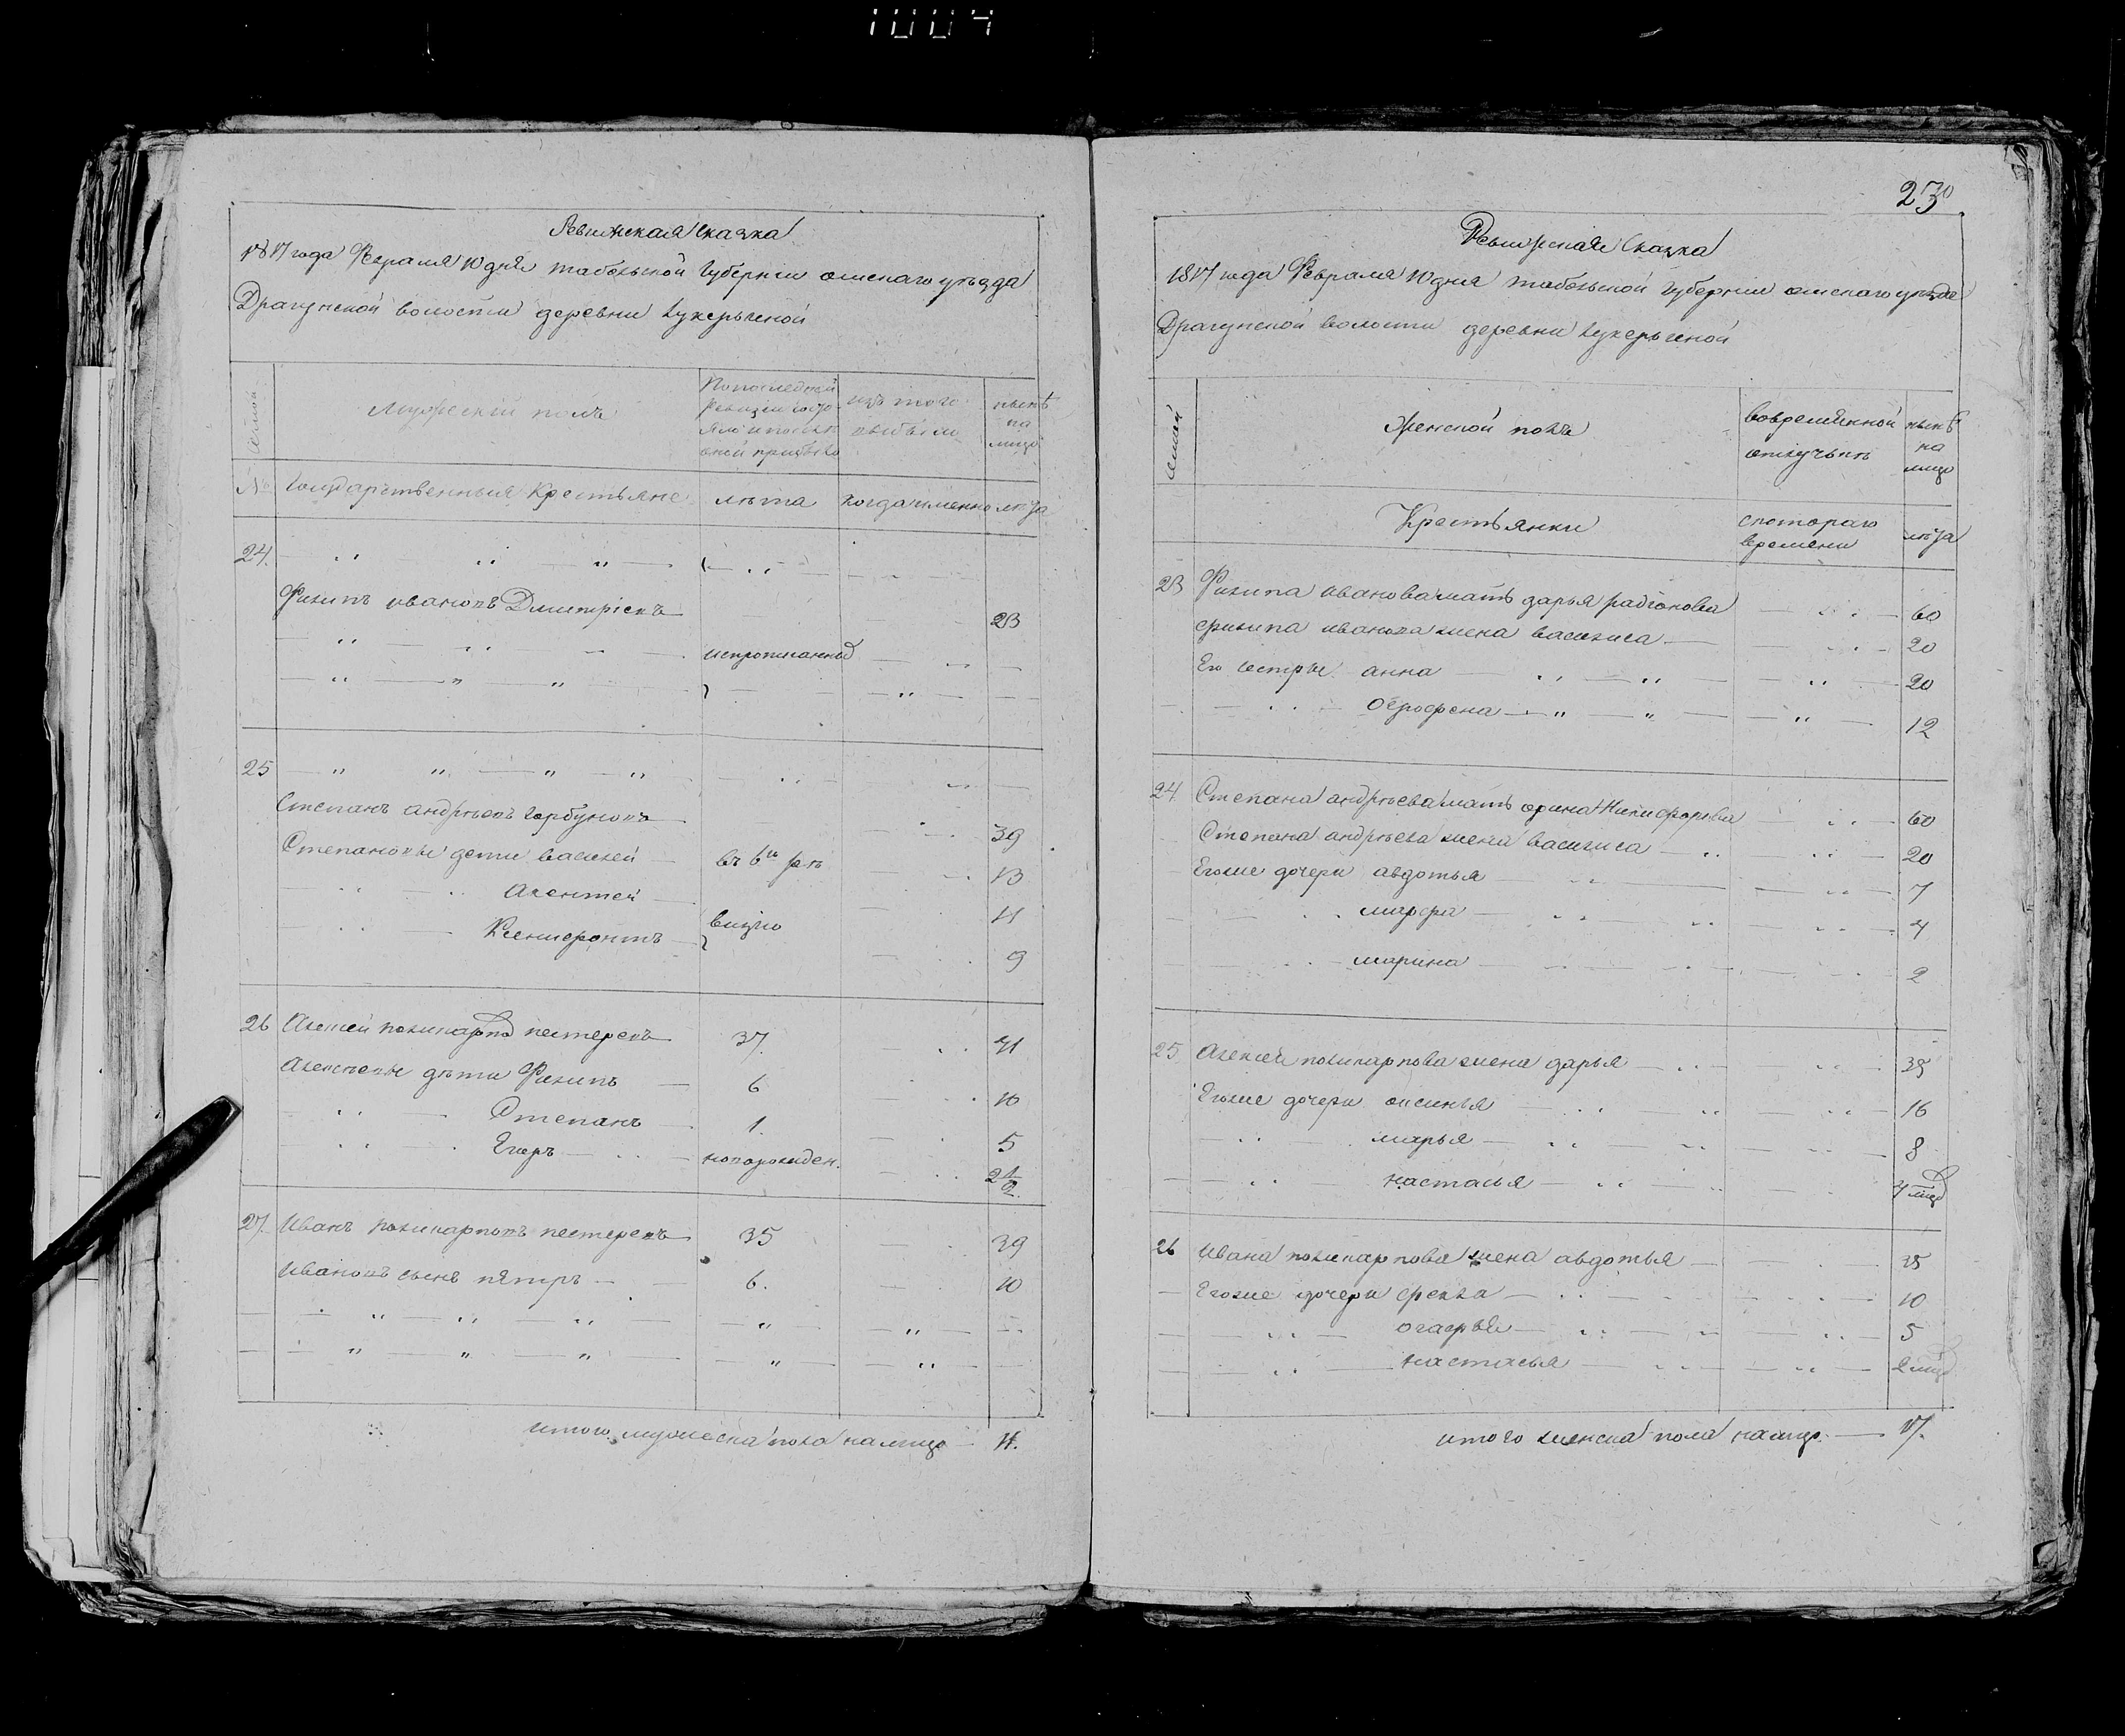 1004
Ревижская Сказка
1817 года Февраля 10 дня табольской губернии омскаго уезда
Драгунской волости деревни
семей
Мужескій полъ
нынѣ
на
лицо
№
Государственныя Крестьяне
лѣта
когда именно
лѣта
24.
Филипъ ивановъ Дмитріевъ
23
непрописанно
25
Степанъ андрѣевъ горбуновъ
39
Степановы дети василей
въ 6й ре
13
Аментей
11
Ксенифонтъ
визію
9
26 Алексей поликарпо пестеревъ
37.
41
Алексѣевы дѣти Филипъ
6
10
Степанъ
1.
5
Егоръ
новорожден.
2 1/2
27. Иванъ поликарповъ пестеревъ
35
39
Ивановъ сынъ пятръ
6.
10
итого мужеска пола налицо
11.
230
Ревижская Сказка
1817 года Февраля 10 дня табольской губернии омскаго уезда
Драгунской волости деревни
семей
Женской полъ
вовременной
отлучьке
нынѣ
на
лицо
Крестьянки
скотораго
времени
лѣта
23 Филипа иванова мать дарья радіонова
60
филипа иванова жена василиса
20
Его сестры анна
20
Огрофена
12
24. Степана андрѣева мать орина Никифорова
60
Степана андрѣева жена василиса
20
Егоже дочери авдотья
7
марфа
4
марина
2
25 Алексея поликарпова жена дарья
39
Егоже дочери оксинья
16
марья
8
настасья
26 Ивана поликарпова жена авдотья
35
Егоже дочери фекла
10
огафья
5
настасья
итого женска пола налицо
17.